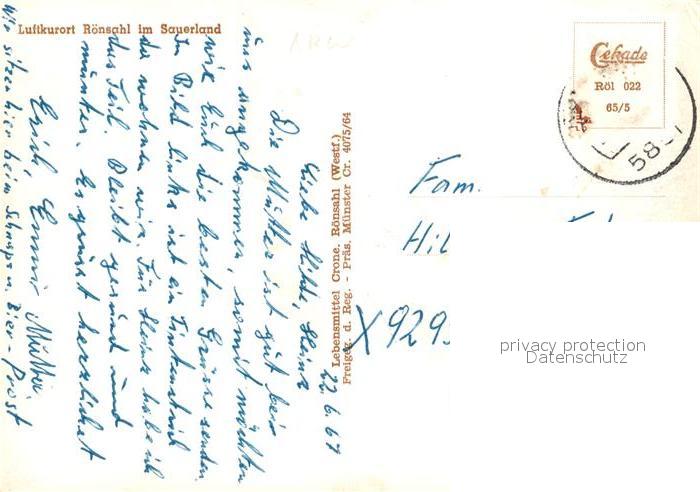 Luftkurort Rönsahl im Sauerland
Cekade
Röl 022
65/5
58
Lebensmittel Crone, Rönsahl (Westf.)
Freigeg. d. Reg. - Präs. Münster Cr. 4075/64
Fam.
Hil
X929
22.6.67
Liebe
Die Mutter ist gut bei
uns angekommen, somit möchten
wir Euch die besten Grüsse senden.
Im Bild links ist ein Tintenstrich
da wohnen wir. Für habe ich
das Teil. Bleibt gesund und
munter. Es grüsst herzlichst
Erich, Emmi Mutter.
Wir sitzen hier beim Schnaps u. Bier - Prost
privacy protection
Datenschutz